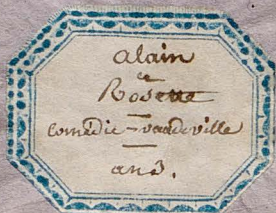 alain
et
Rosette
comédie-vaudeville
an 3.